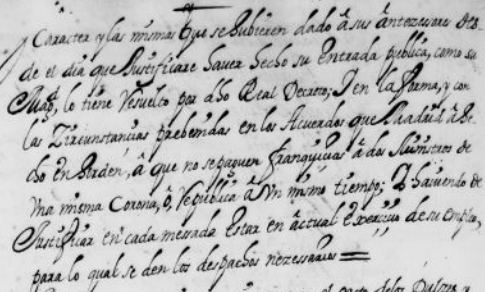 Caracter y las mismas que se hubieren dado â sus ântezesores des-
de el dia que Justificare haver hecho su Entrada publica, como su
Magd. lo tiene Resuelto por dho Real Decreto; Y en la forma, y con
las Zircunstancias prebenidas en los Acuerdos que
en orden, â que no se paguen franquicias â dos Ministros de
Vna misma Corona, ô Republica â Vn mismo tiempo; Y haviendo de
Justificar en cada mesada Estar en âctual exercicio de su empleo,
para lo qual se den los despachos nezessarios =
de los